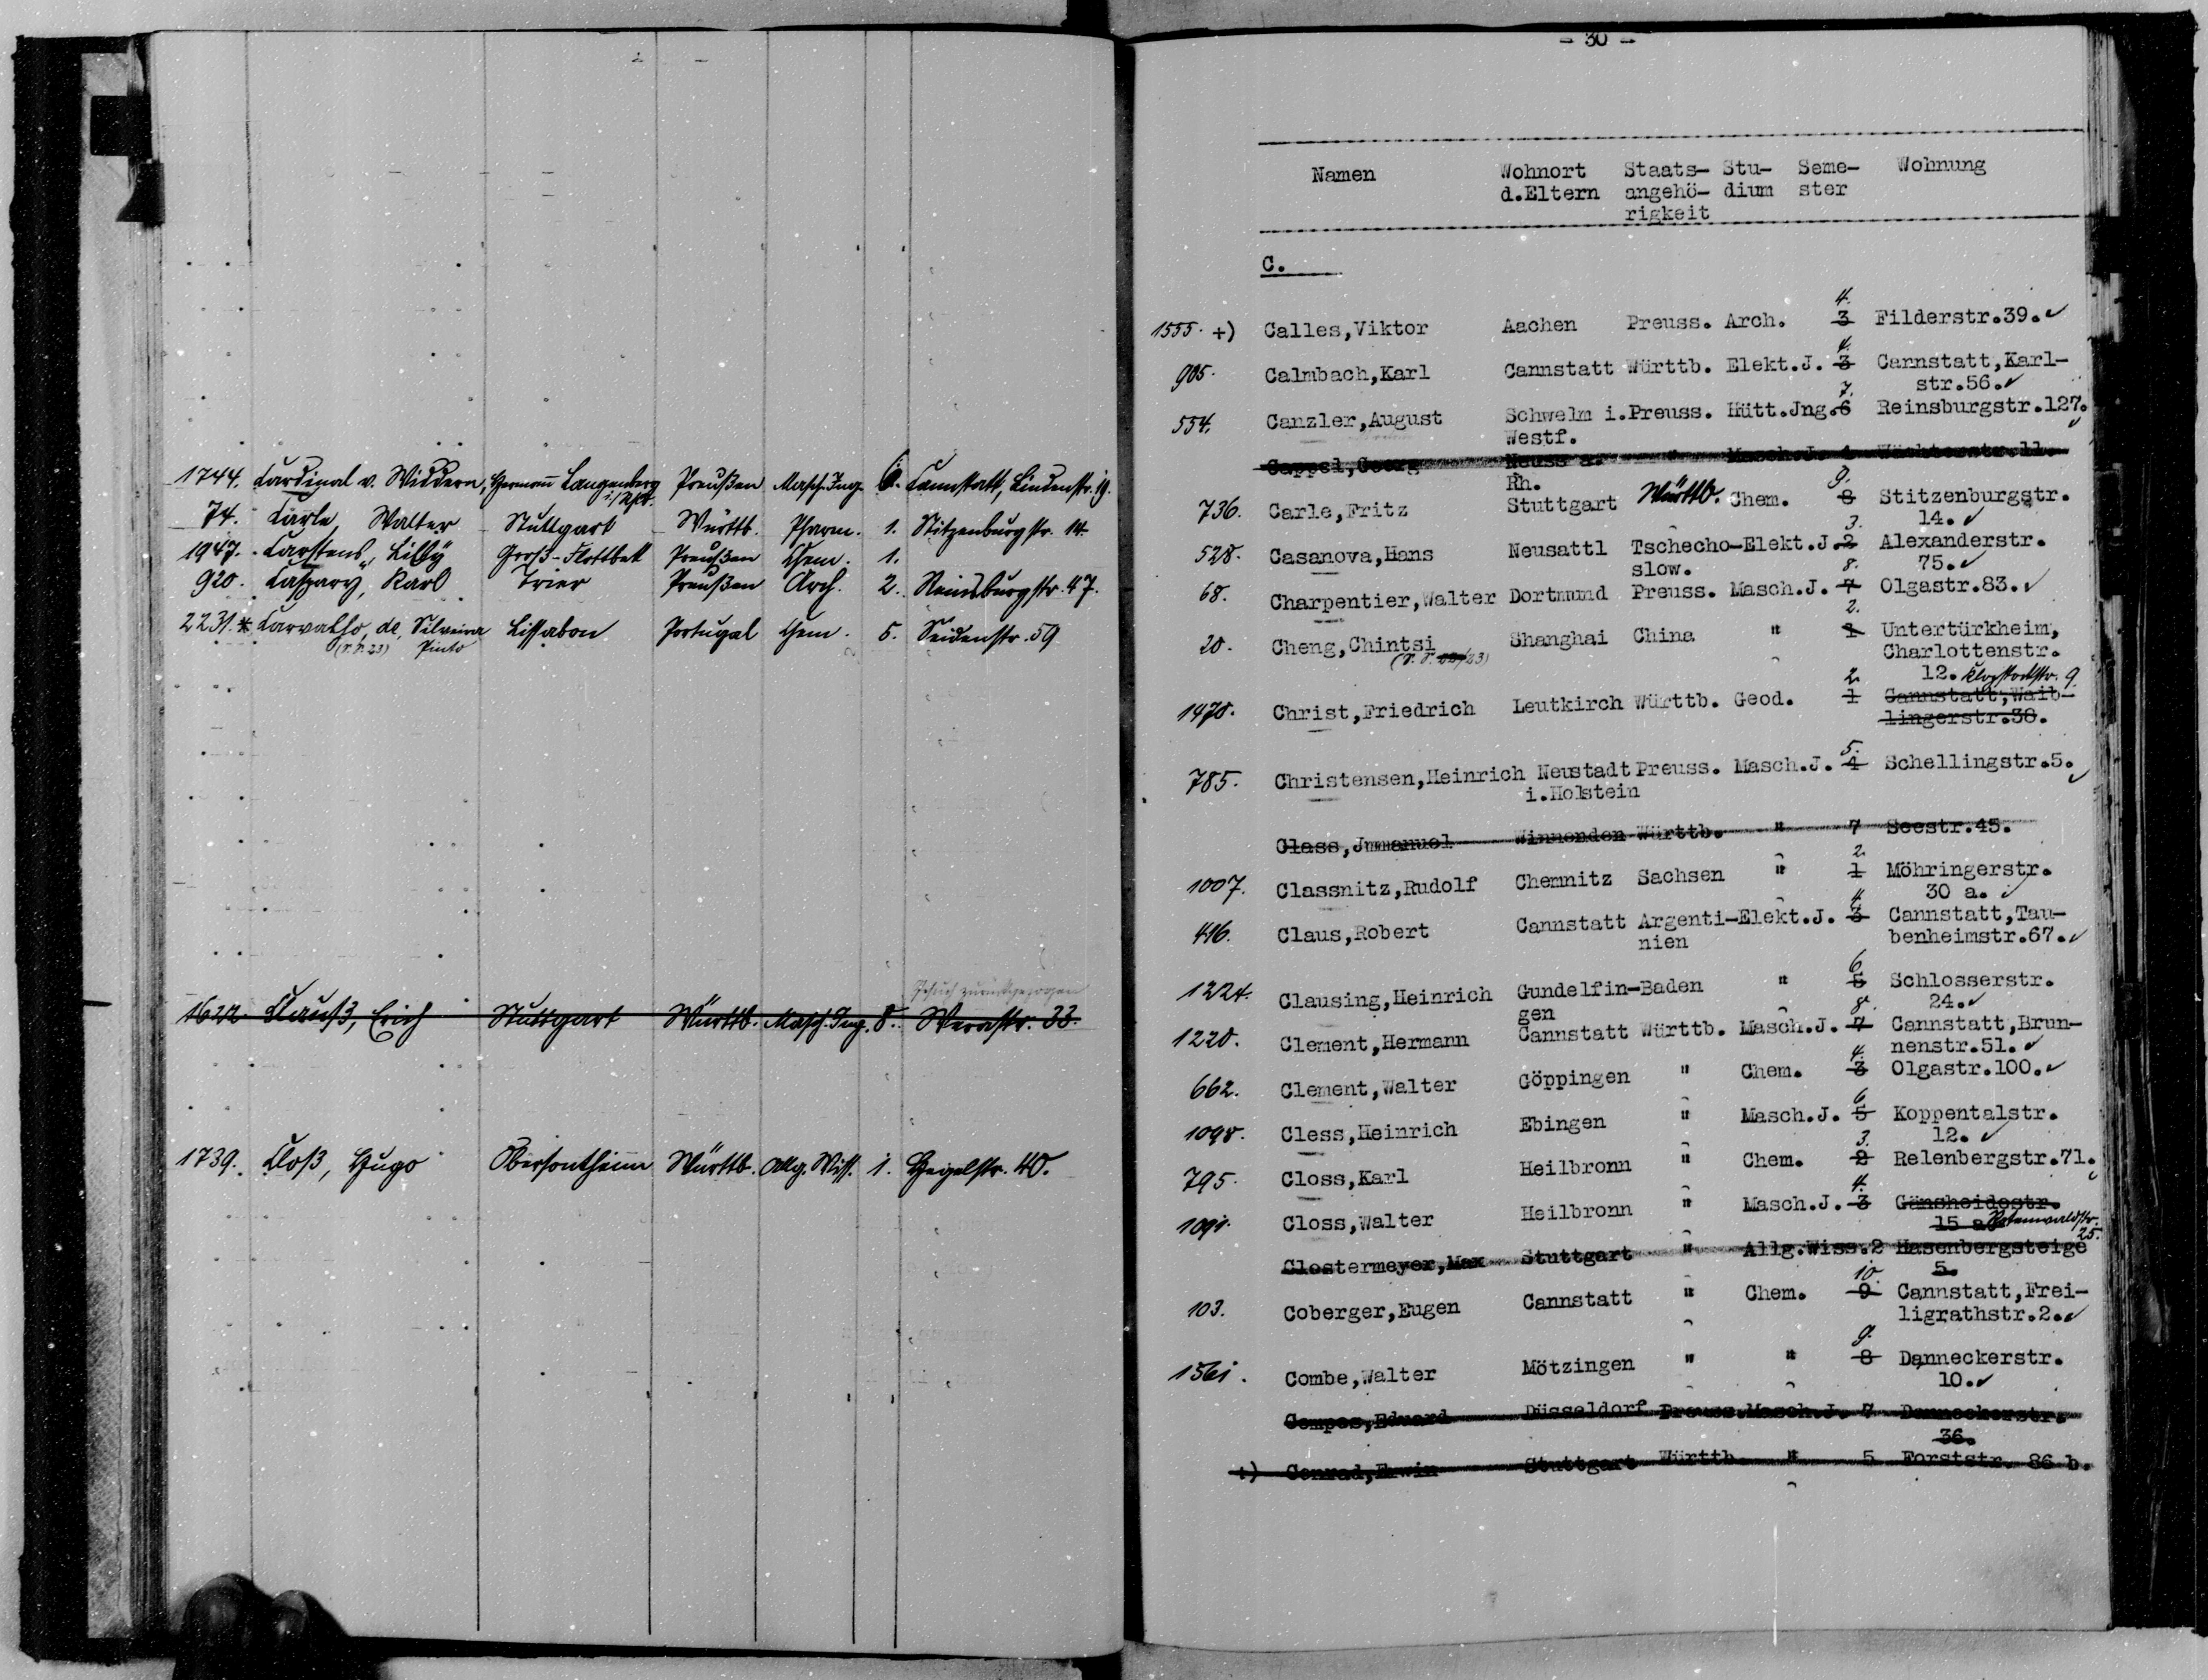 1744. Cardinal v. Widdern, Hermann Langenberg Preußen Masch. Ing. 6. Cannstatt, Lindenstr. 19.
74. Carle, Walter Stuttgart Württb. Pharm. 1. Stitzenburgstr. 14.
1947. Carstens, Lilly Groß-Flottbek Preußen Chem. 1.
920. Caspary, Karl Trier Preußen Arch. 2. Reinsburgstr. 47.
2231. * Carvalho, de, Silveira Lissabon Portugal Chem. 5. Seidenstr. 59
Pinto
Gesuch zurückgezogen
1622. Clauß, Erich Stuttgart Württb. Masch. Ing. 8. Werastr. 33.
1739. Cloß, Hugo Obersontheim Württb. Allg. Wiss. 1. Hegelstr. 40.
- 30 -
Namen Wohnort Staats- Stu- Seme- Wohnung
d.Eltern angehö- dium ster
rigkeit
C.
4.
1555. +) Calles,Viktor Aachen Preuss. Arch. 3 Filderstr.39.✓
4.
905. Calmbach,Karl Cannstatt Württb. Elekt.J. 3 Cannstatt,Karl-
7. str.56.✓
554. Canzler,August Schwelm i.Preuss. Hütt.Jng.6 Reinsburgstr.127.✓
Westf.
Cappel,Georg Neuss a. " Masch.J. 1 Wächterstr.11.
Rh. 9.
736. Carle,Fritz Stuttgart Württb. Chem. 8 Stitzenburgstr.
3. 14.✓
528. Casanova,Hans Neusattl Tschecho-Elekt.J.2 Alexanderstr.
slow. 8. 75.✓
68. Charpentier,Walter Dortmund Preuss. Masch.J. 7 Olgastr.83.✓
2.
20. Cheng,Chintsi Shanghai China " 1 Untertürkheim,
Charlottenstr.
2. 12. Klopstockstr. 9.
1478. Christ,Friedrich Leutkirch Württb. Geod. 1 Cannstatt,Waib-
lingerstr.38.
5.
785. Christensen,Heinrich Neustadt Preuss. Masch.J. 4 Schellingstr.5.✓
i.Holstein
Glass,Jmmanuel Winnenden Württb. " 7 Seestr.45.
2.
1007. Classnitz,Rudolf Chemnitz Sachsen " 1 Möhringerstr.
4. 30 a. ✓
416. Claus,Robert Cannstatt Argenti-Elekt.J. 3 Cannstatt,Tau-
nien benheimstr.67.✓
6
1224. Clausing,Heinrich Gundelfin-Baden " 5 Schlosserstr.
gen 8. 24.✓
1220. Clement,Hermann Cannstatt Württb. Masch.J. 7 Cannstatt,Brun-
4. nenstr.51.✓
662. Clement,Walter Göppingen " Chem. 3 Olgastr.100.✓
6
1098. Cless,Heinrich Ebingen " Masch.J. 5 Koppentalstr.
3. 12. ✓
795. Closs,Karl Heilbronn " Chem. 2 Relenbergstr.71.✓
4.
1091. Closs,Walter Heilbronn " Masch.J. 3 Gänsheidestr.
15 a. Rotenwaldstr. 25.
Clostermeyer,Max Stuttgart " Allg.Wiss.2 Hasenbergsteige
10. 5.
103. Coberger,Eugen Cannstatt " Chem. 9 Cannstatt,Frei-
ligrathstr.2.✓
9.
1561. Combe,Walter Mötzingen " " 8 Danneckerstr.
10.✓
Compes,Eduard Düsseldorf Preuss.Masch.J. 7 Danneckerstr.
36.
+) Conrad,Erwin Stuttgart Württb. " 5 Forststr. 86 b.